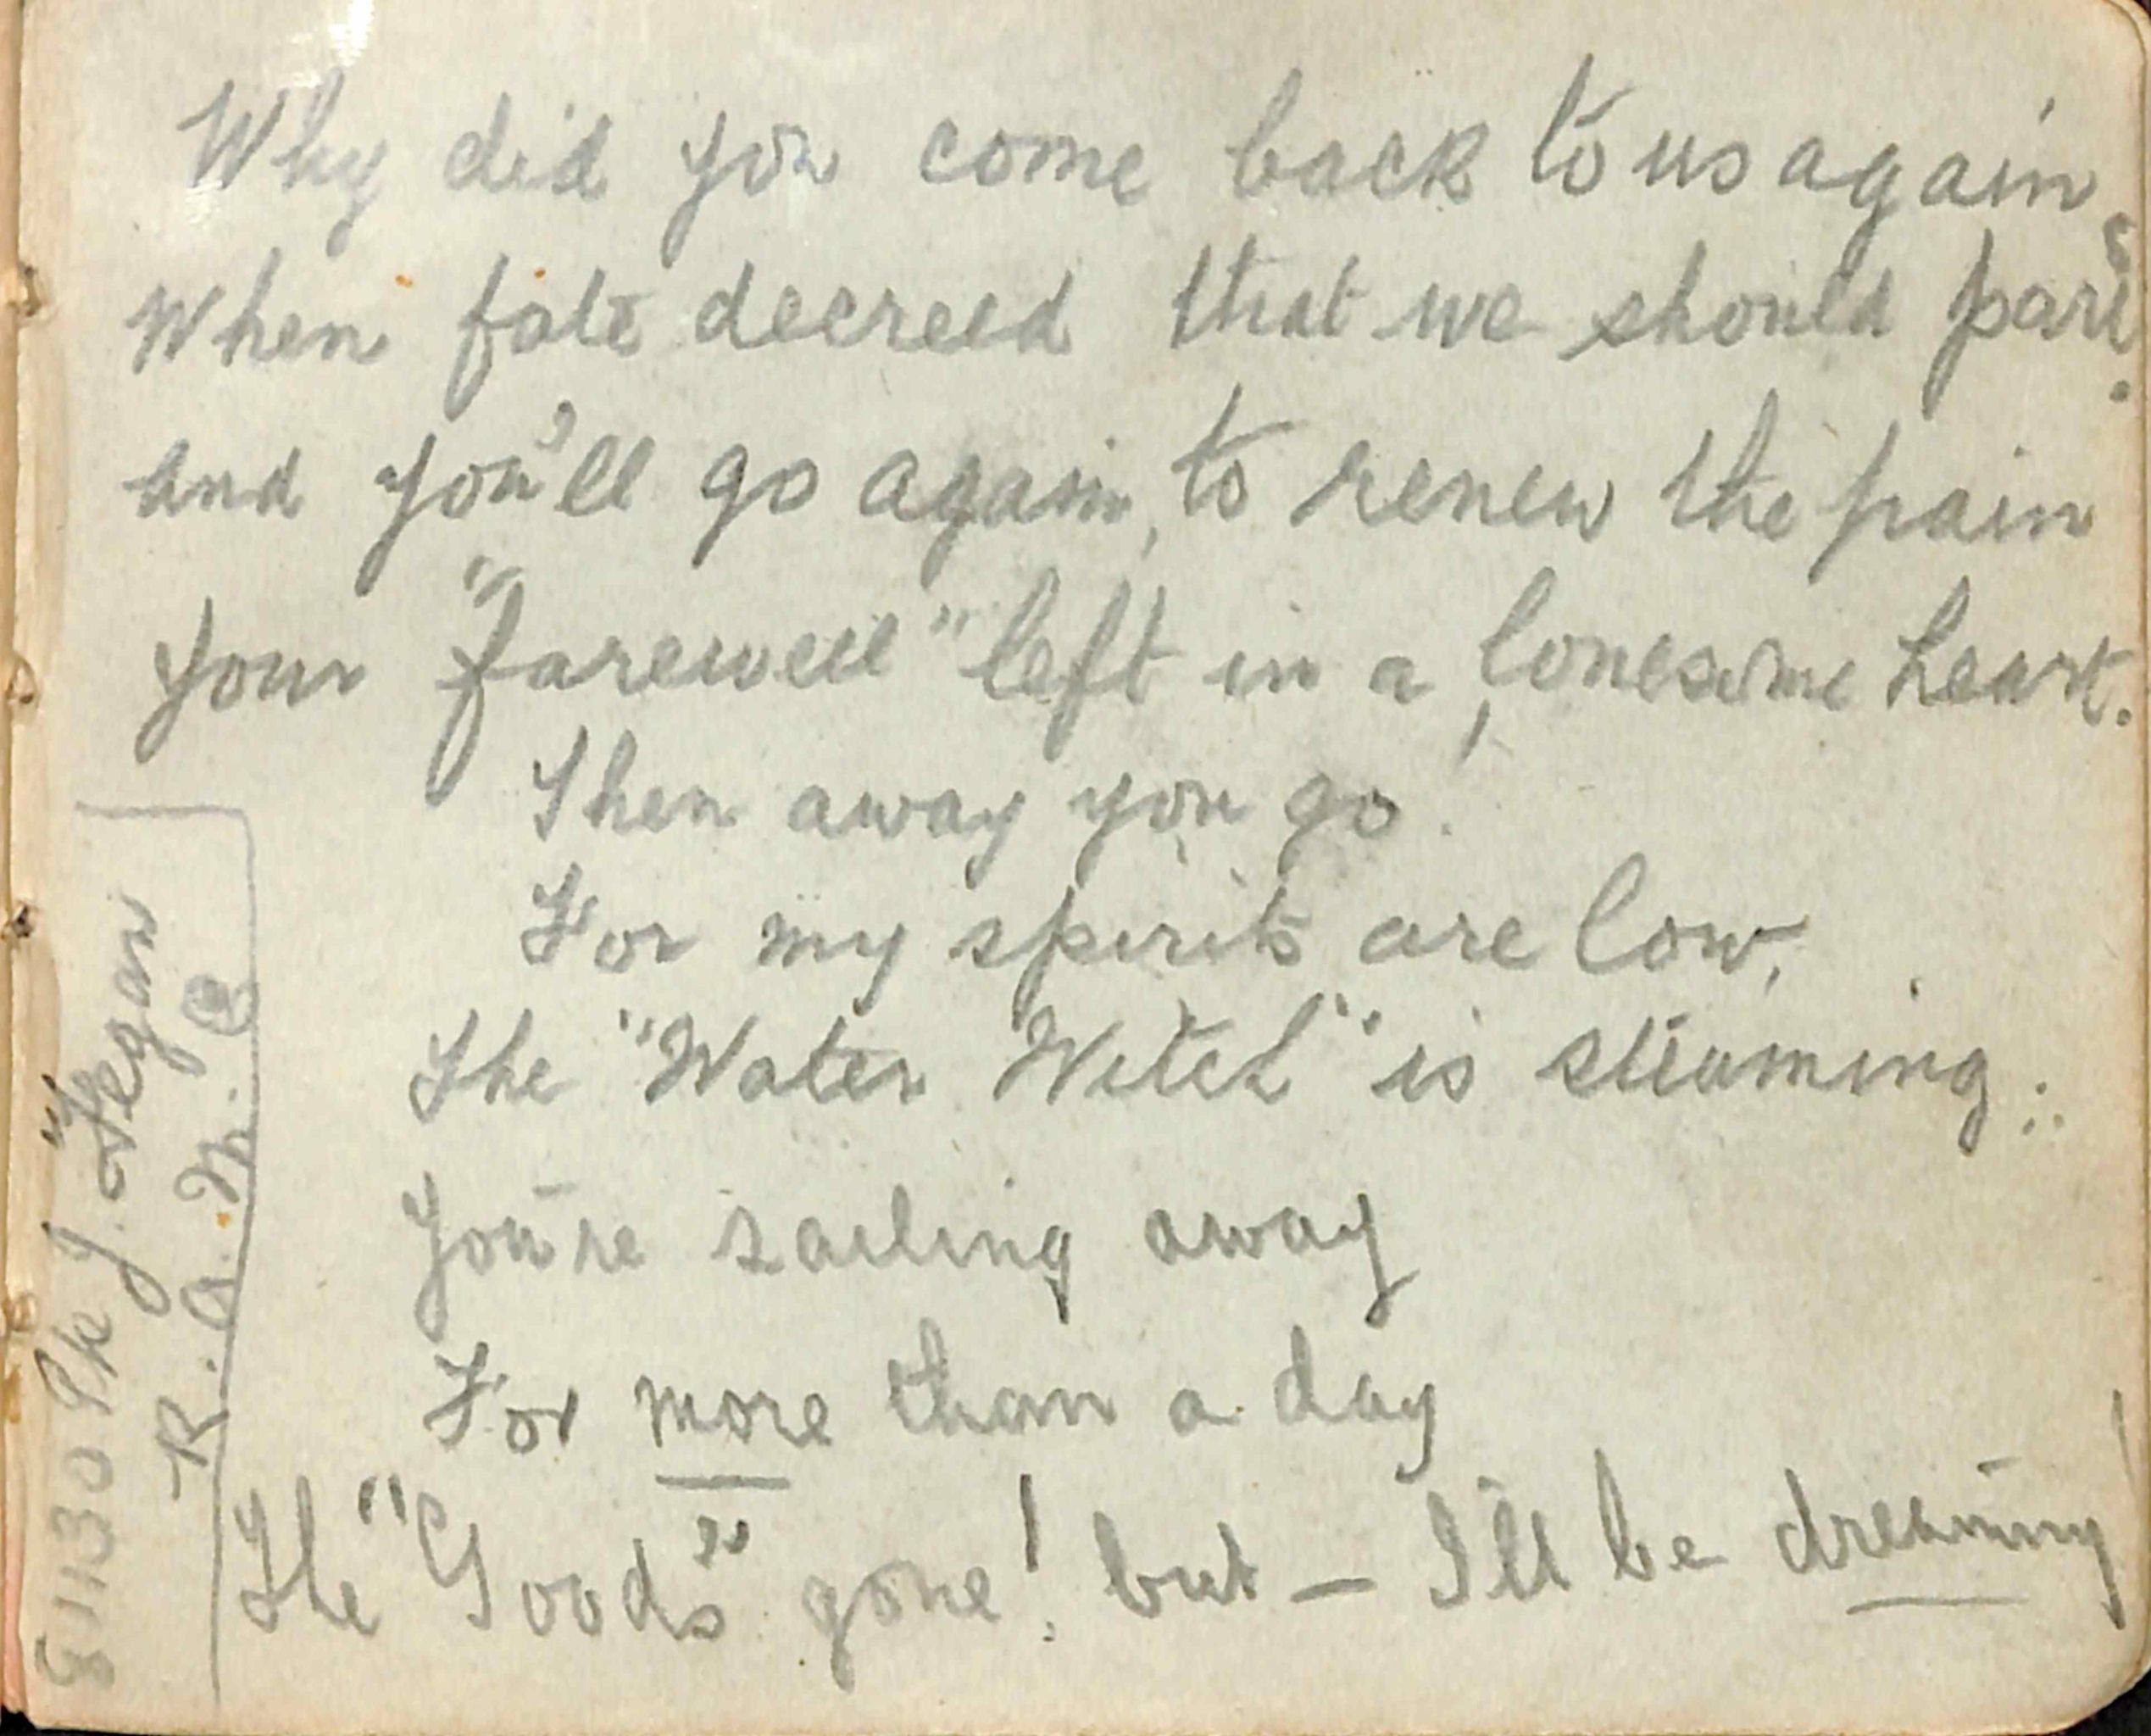 Why did you come back to us again,
When fate decreed that we should part?
And you'll go again, to renew the pain
Your "farewell" left in a lonesome heart.
Then away you go!
For my spirits are low,
The "Water Witch" is steaming;
You're sailing away
For more than a day
The "Goods" gone! but — I'll be dreaming!
81130 Pte J. Fegan
R. A. M. C